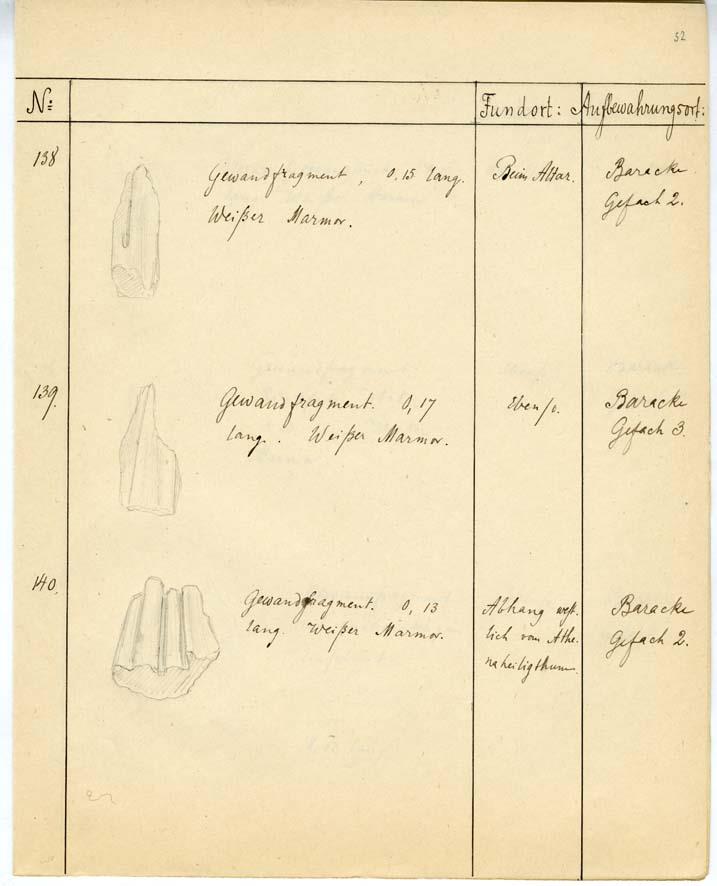 52
N: Fundort: Aufbewahrungsort:
138 Gewandfragment, 0,15 lang. Beim Altar. Baracke
Weißer Marmor. Gefach 2.
139. Gewandfragment. 0,17 Ebenso. Baracke
lang. Weißer Marmor. Gefach 3.
140. Gewandfragment. 0,13 Abhang west- Baracke
lang. Weißer Marmor. lich vom Athe- Gefach 2.
naheiligthum.